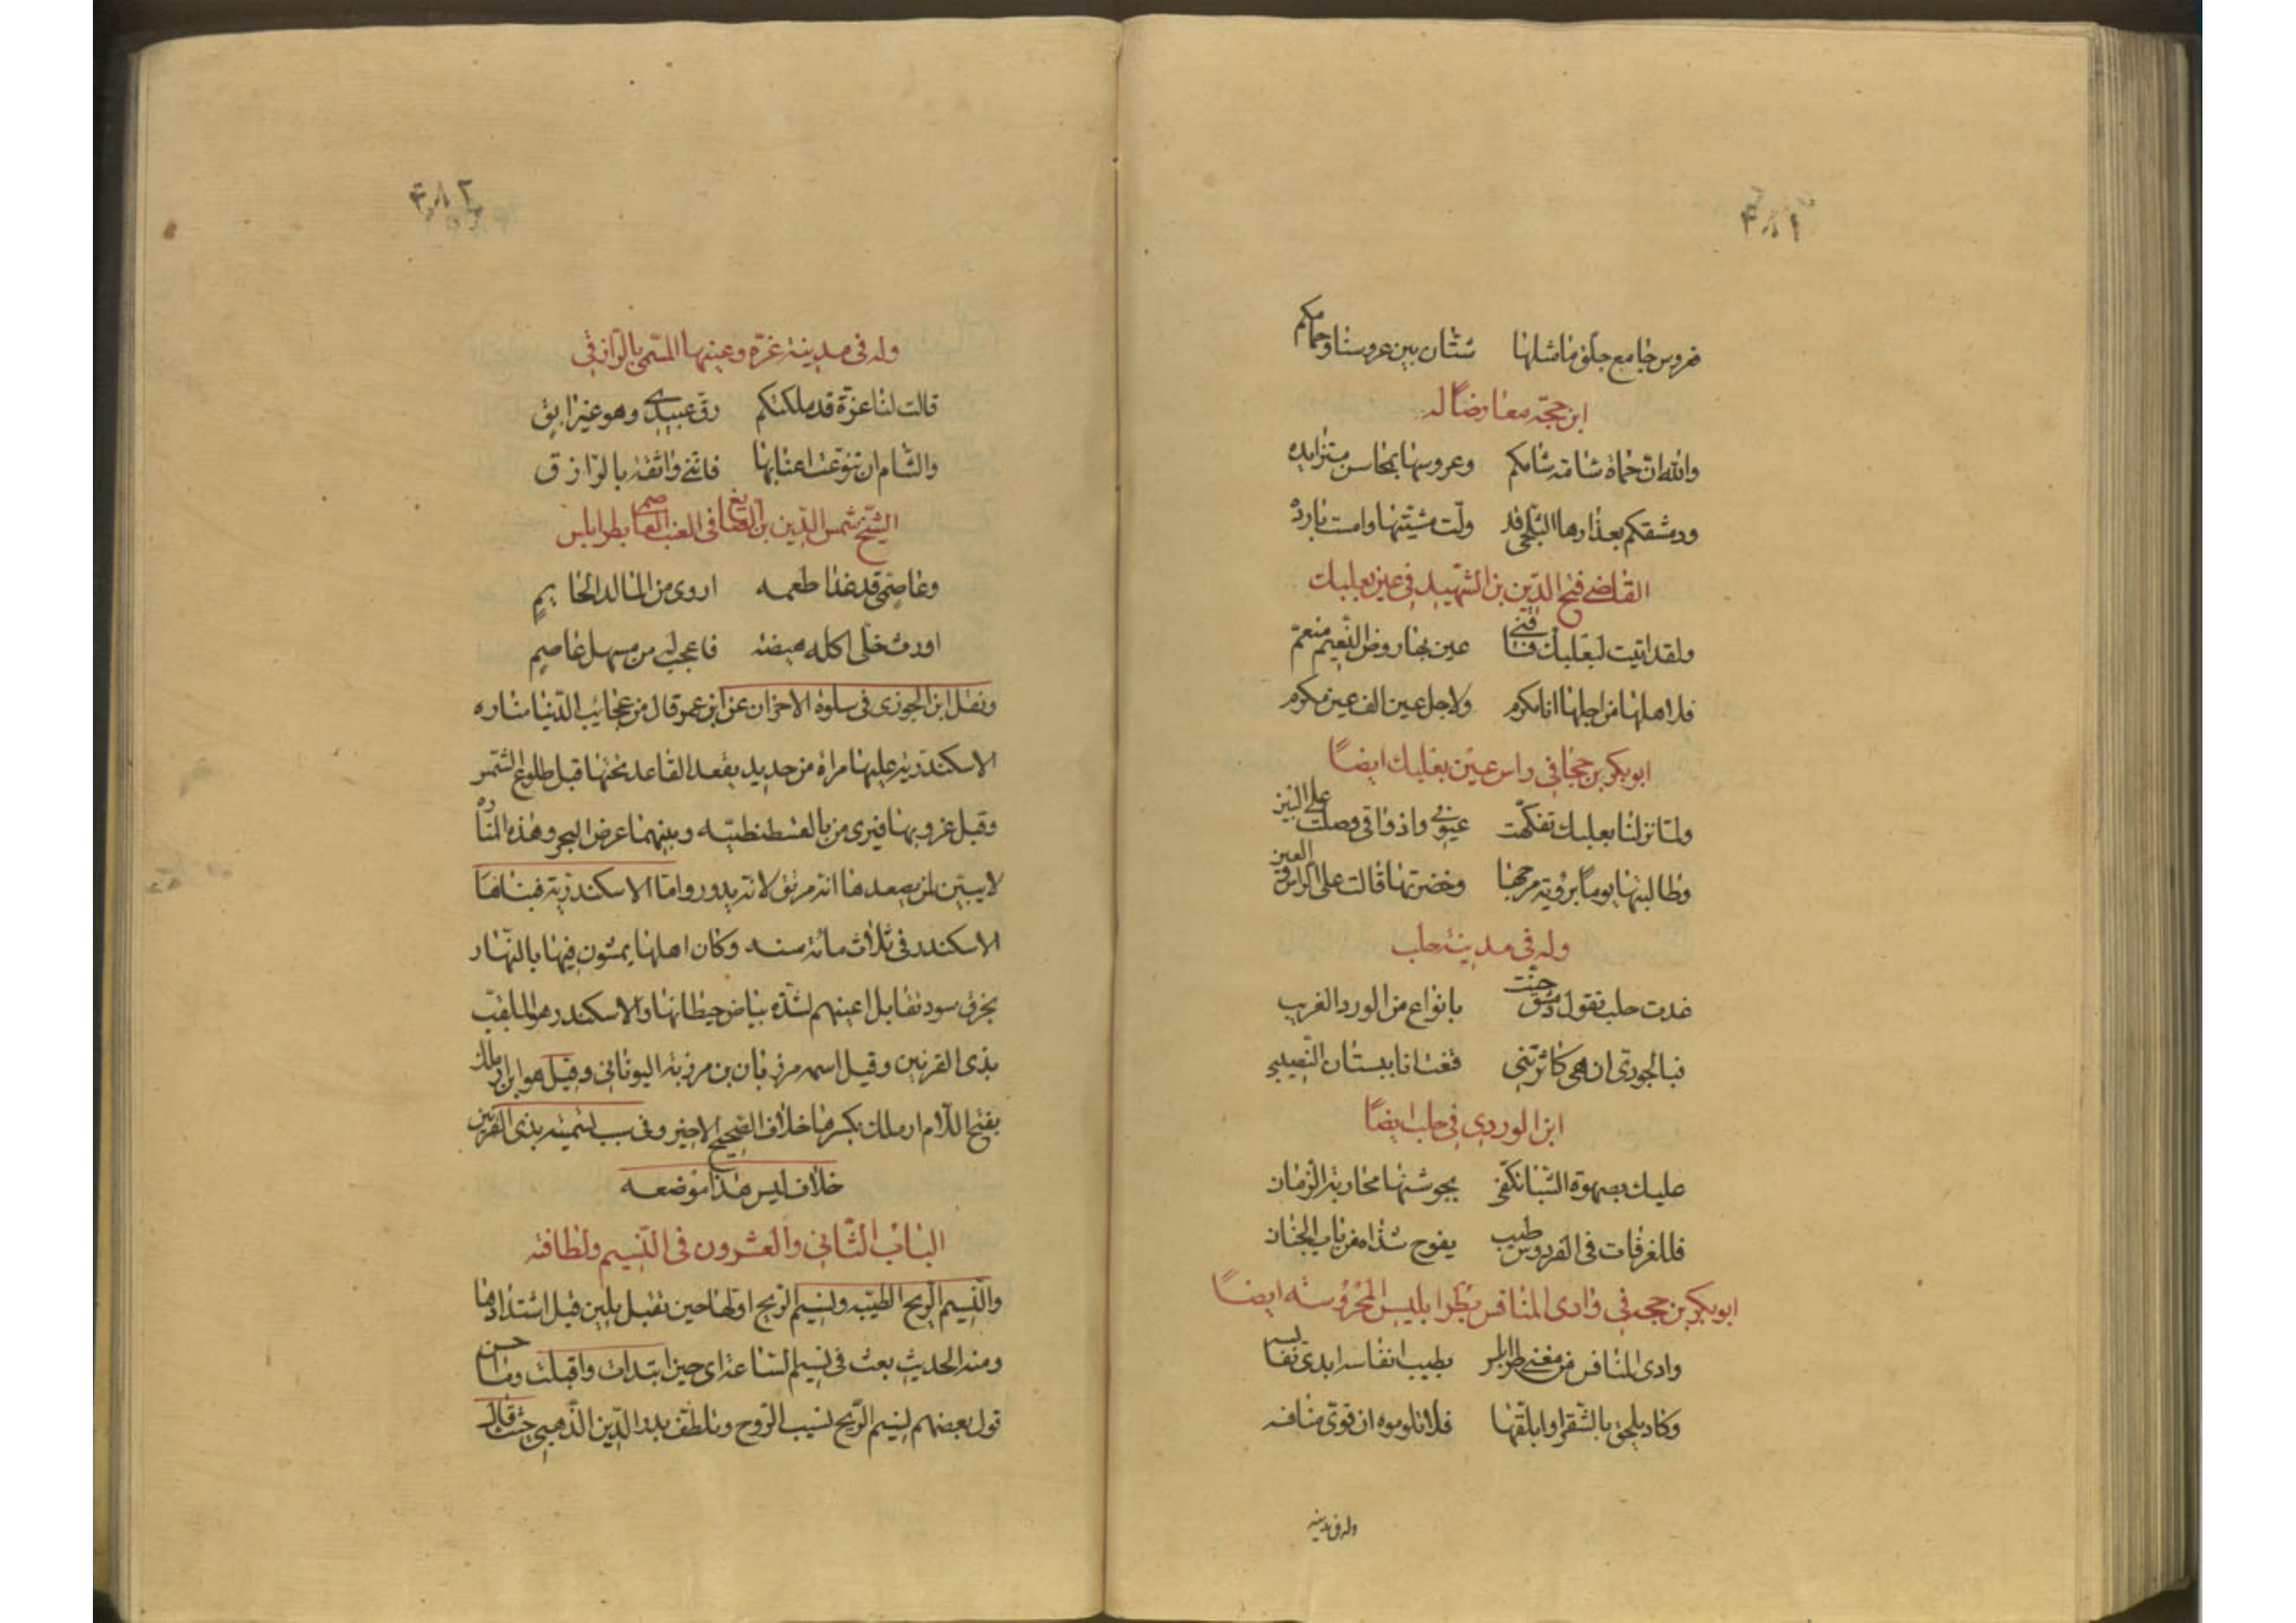 ۴۸۱
فروس جامع جلق ما مثلها شتان بين عروسنا وحمامكم
ابن حجة معارضا له
والله ان حماة شامة شامكم وعروسها بمحاسن متزايده
ودمشقكم بعذارها الثلجي قد ولت مشيتها وامست بارده
القاضي فتح الدين بن الشهيد في عين بعلبك
ولقد اتيت لبعلبك فشاقني عين بها روض النعيم منعم
فلاهلها من اجلها انا مكرم ولاجل عين الف عين مكرم
ابوبكر بن حجة في راس عين بعلبك ايضًا
ولما نزلنا بعلبك تفكهت عيوني واذواقي وصلت على البين
وطالبتها يومًا برؤية مرجها وخضرتها قالت على الراس والعين
وله في مدينة حلب
غدت حلب تقول دمشق جنت بانواع من الورد الغريب
فبالجوري ان هي كاثرتني قنعت انا ببستان النصيبي
ابن الوردي في حلب ايضًا
عليك بصهوة الشبا تكفى بجوشنها محاربة الزمان
فللغرفات في الفردوس طيب يفوح شذاه من باب الجنان
ابوبكر بن حجه في وادى المنافس بطرابليس المحروسته ايضًا
وادى المنافس من مغنى طرابلس بطيب انفاسه ابدى نفايسه
وكاد يلحق بالشقرا وابلقها فلا تلوموه ان قوى منافسه
وله في مدينة
۴۸۲
وله في مدينة غزة وعينها المسمى بالرازقي
قالت لنا غزة قد ملكتكم رق عبيدي وهو غير ابق
والشام ان تنوعت اعنابها فانني واثقة بالرازق
الشيخ شمس الدين بن الصايغ في العنب العاصمي بطرابلس
وعاصمي قد غذا طعمه اروى من الما لدا الحايم
اورث خلى اكله هيضة فاعجب له من مسهل عاصم
ونقل ابن الجوزى في سلوة الاحزان عن ابن عمر قال من عجايب الدنيا مناره
الاسكندرية عليها مراة من حديد يقعد القاعد تحتها قبل طلوع الشمس
وقبل غروبها فيرى من بالقسطنطنيه وبينهما عرض البحر وهذه المناره
لا يبين لمن يصعدها انه مرتق لانه يدور واما الاسكندرية فبناها
الاسكندر في ثلاث مائة سنه وكان اهلها يمشون فيها بالنهار
بخرق سود تقابل اعينهم لشدة بياض حيطانها والاسكندر هو الملقب
بذى القرنين وقيل اسمه مرزبان بن مرزبة اليوناني وقيل هو ابن ارملك
بفتح اللام ارملك بكسرها خلاف الصحيح الاخير وفي سبب تسميته بذى القرنين
خلاف ليس هذا موضعه
الباب الثاني والعشرون في النسيم ولطافته
والنسيم الريح الطيبه ونسيم الريح اولها حين تقبل بلين قبل اشتدادها
ومنه الحديث بعثت في نسيم الساعة اى حين ابتدات واقبلت وما احسن
قول بعضهم نسيم الريح نسيب الروح وتلطف بدر الدين الذهبي حيث قال